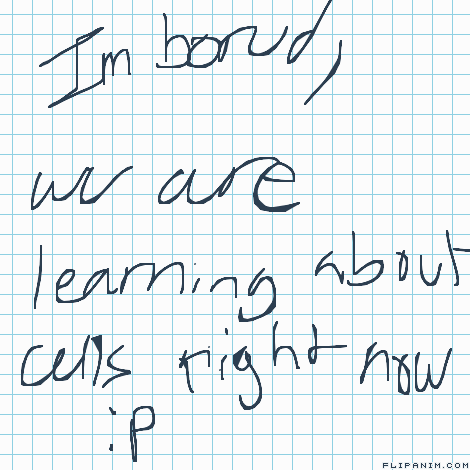 Im bored,
we are
learning about
cells right now
:P
FLIPANIM.COM